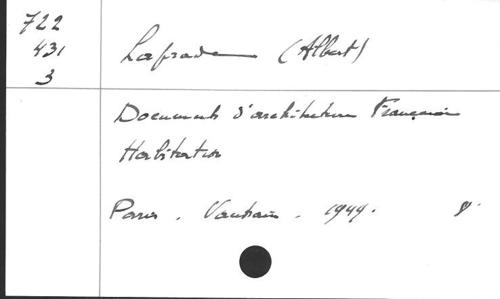 722
431
3
Laprade (Albert)
Documents d'architecture Française
Habitation
Paris. Vautrain. 1944. 8°